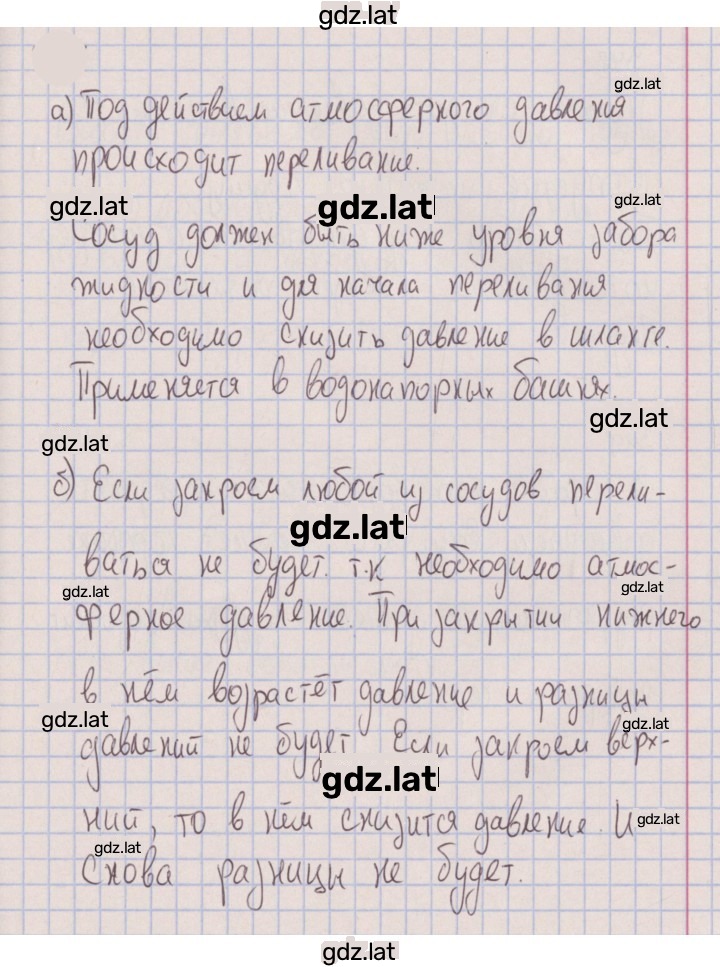 gdz.lat
gdz.lat
а) Под действием атмосферного давления
происходит переливание.
gdz.lat gdz.lat gdz.lat
Сосуд должен быть ниже уровня забора
жидкости и для начала переливания
необходимо снизить давление в шланге.
Применяется в водонапорных башнях.
gdz.lat
gdz.lat
б) Если закроем любой из сосудов перели-
gdz.lat
ваться не будет. т.к необходимо атмос-
gdz.lat gdz.lat
ферное давление. При закрытии нижнего
в нём возрастёт давление и разницы
gdz.lat gdz.lat
давлений не будет Если закроем верх-
gdz.lat
ний, то в нём снизится давление. И
gdz.lat
gdz.lat
снова разницы не будет.
gdz.lat